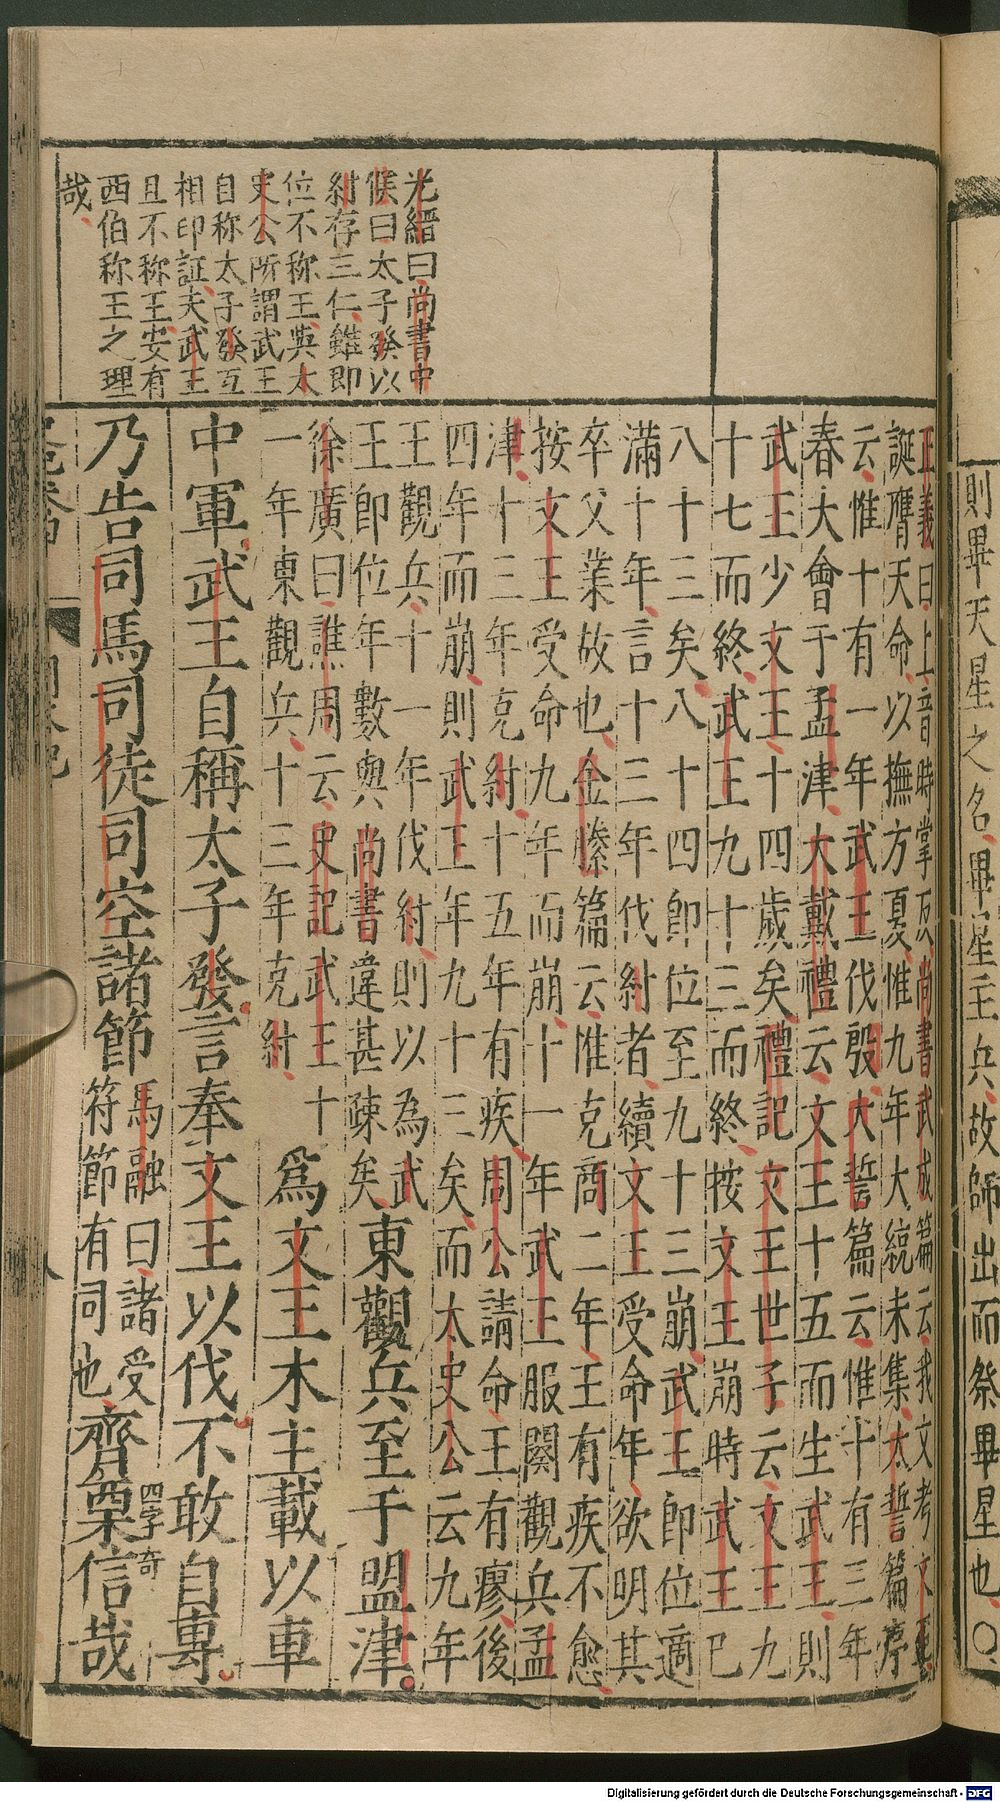 則畢天星之名畢星主兵故師出而祭畢星也○
光縉曰尚書中
候曰太子發以
紂存三仁雖即
位不称王英太
史公所謂武王
自称太子發互
相印証夫武王
且不称王安有
西伯称王之理
哉
正義曰上音時掌反尚書武成篇云我文考文王
誕膺天命以撫方夏惟九年大統未集太誓篇序
云惟十有一年武王伐殷大誓篇云惟十有三年
春大會于孟津大戴禮云文王十五而生武王則
武王少文王十四歲矣禮記文王世子云文王九
十七而終武王九十三而終按文王崩時武王已
八十三矣八十四即位至九十三崩武王即位適
滿十年言十三年伐紂者續文王受命年欲明其
卒父業故也金縢篇云惟克商二年王有疾不愈
按文王受命九年而崩十一年武王服闋觀兵孟
津十三年克紂十五年有疾周公請命王有瘳後
四年而崩則武王年九十三矣而太史公云九年
王觀兵十一年伐紂則以為武
王即位年數與尚書違甚疎矣
東觀兵至于盟津
徐廣曰譙周云史記武王十
一年東觀兵十三年克紂
爲文王木主載以車
中軍武王自稱太子發言奉文王以伐不敢自專
乃告司馬司徒司空諸節
馬融曰諸受
符節有司也
齊栗信哉
四字奇
Digitalisierung gefördert durch die Deutsche Forschungsgemeinschaft - DFG